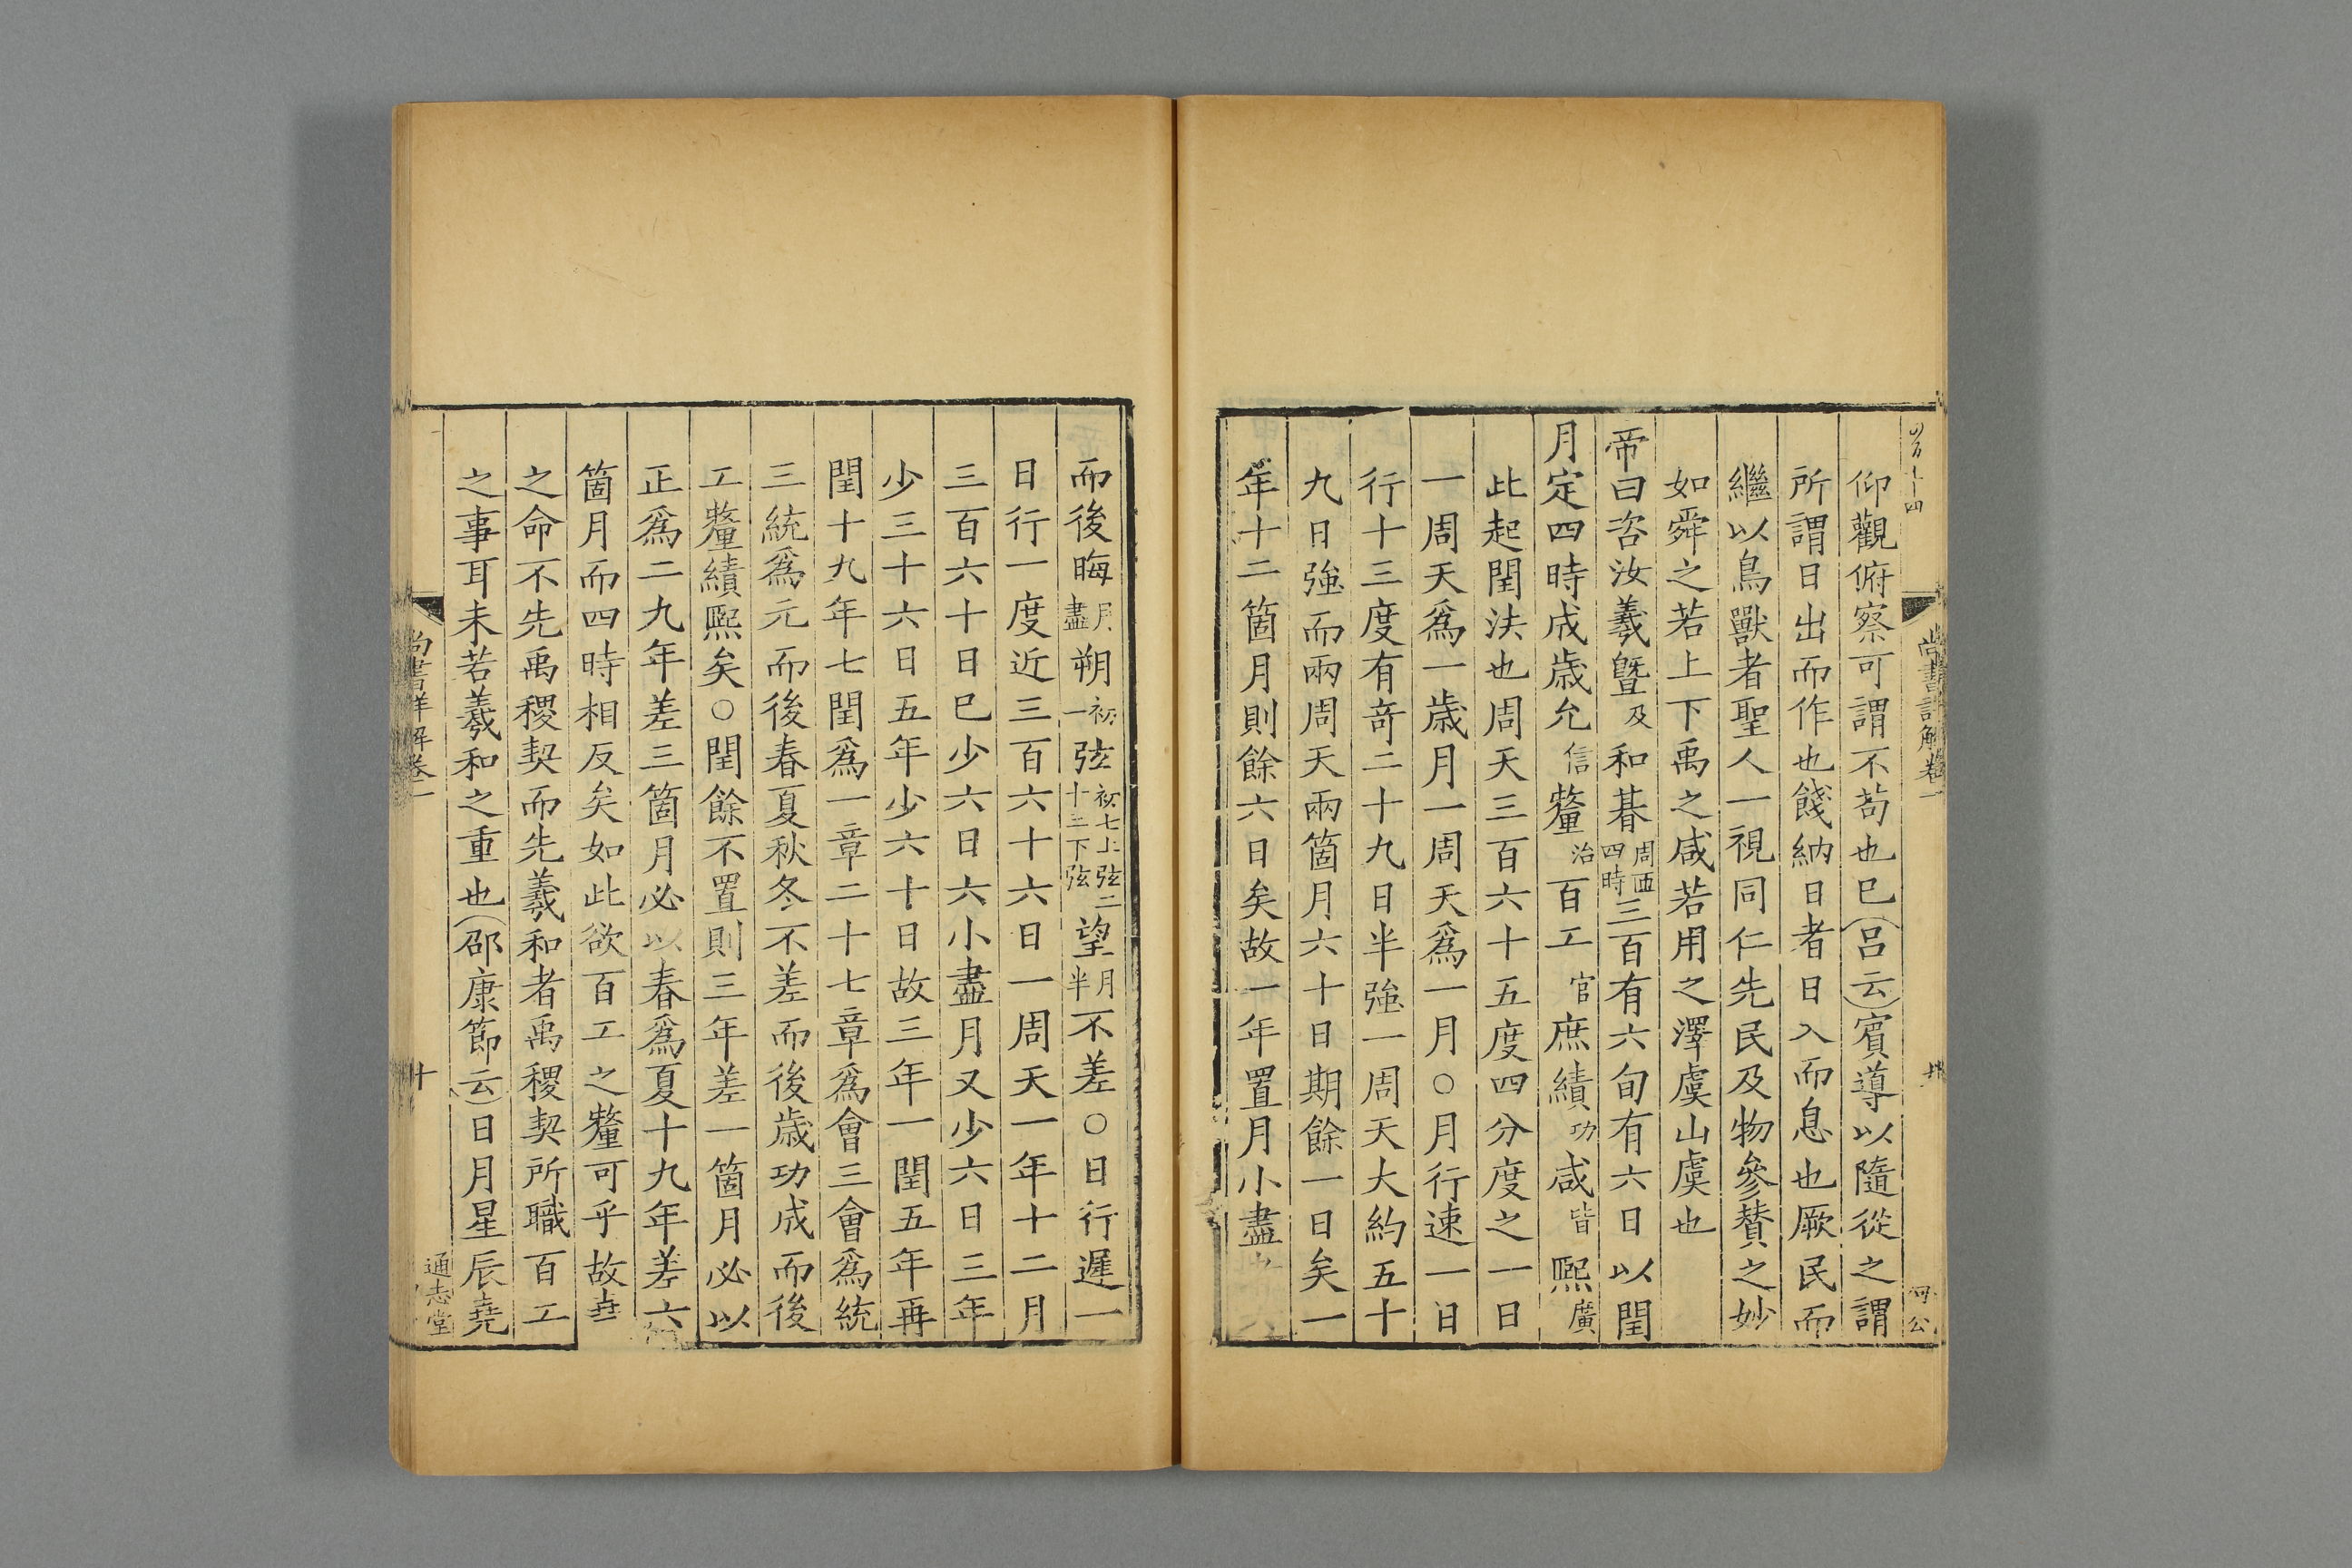 尚書詳解卷一
仰觀俯察可謂不苟也已吕云賓導以隨從之謂
所謂日出而作也餞納日者日入而息也厥民而
繼以鳥獸者聖人一視同仁先民及物參賛之妙
如舜之若上下禹之咸若用之澤虞山虞也
帝曰咨汝羲曁及和朞周匝四時三百有六旬有六日以閏
月定四時成歳允信釐治百工官庶績功咸皆熙廣
此起閏法也周天三百六十五度四分度之一日
一周天爲一歳月一周天爲一月○月行速一日
行十三度有竒二十九日半強一周天大約五十
九日強而兩周天兩箇月六十日期餘一日矣一
年十二箇月則餘六日矣故一年置月小盡
而後晦月盡朔初一弦初七上弦二十三下弦望月半不差○日行遲一
日行一度近三百六十六日一周天一年十二月
三百六十日已少六日六小盡月又少六日三年
少三十六日五年少六十日故三年一閏五年再
閏十九年七閏爲一章二十七章爲會三會爲統
三統爲元而後春夏秋冬不差而後歳功成而後
工釐績熙矣○閏餘不置則三年差一箇月必以
正爲二九年差三箇月必以春爲夏十九年差六
箇月而四時相反矣如此欲百工之釐可乎故堯
之命不先禹稷契而先羲和者禹稷契所職百工
之事耳未若羲和之重也邵康節云日月星辰堯
尚書詳解卷一
十
通志堂